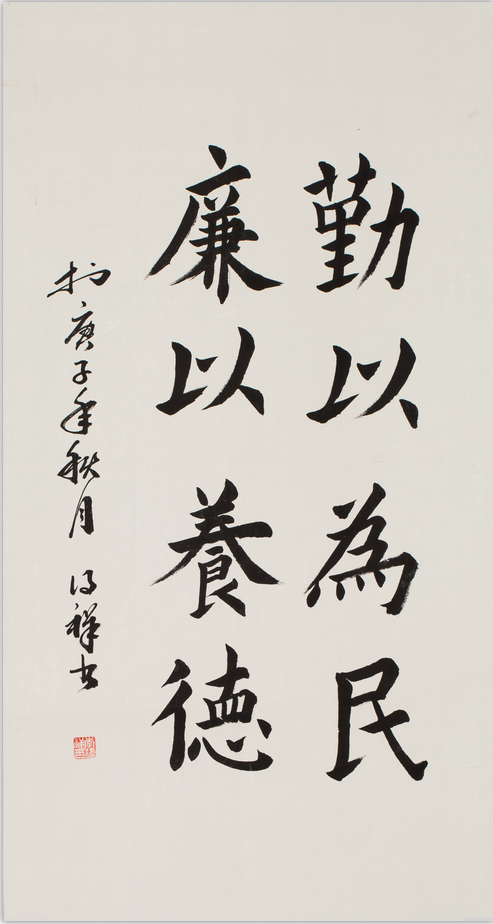 勤以為民
廉以養德
於庚子年秋月 得祥書